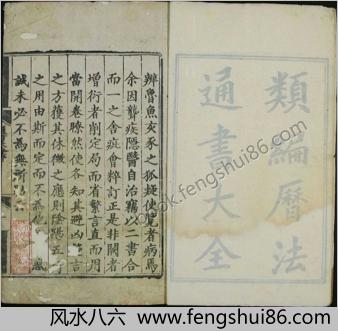 類編曆法
通書大全
辨魯魚亥豕之狐疑使覽者病焉
余因聾疾隱醫自治竊以二書合
而一之舍症會粹訂正是非闕者
增衍者削定局而省繁言直而用
當開卷瞭然使各知其避凶
之方獲其休徵之應則陰陽五
之用由斯而定而不為他
誠未必不為無所
www.fengshui86.com
风水八六 www.fengshui86.com